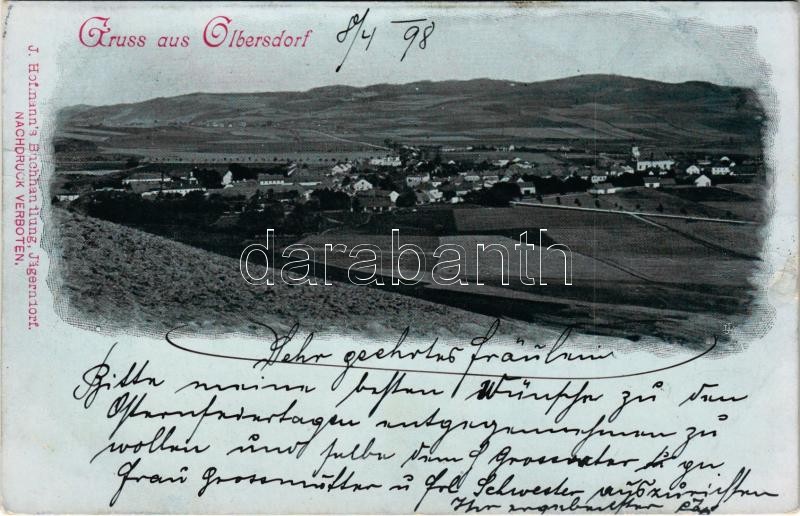 Gruss aus Olbersdorf
8/4 98
J. Hofmann's Buchhandlung, Jägerndorf.
NACHDRUCK VERBOTEN.
darabanth
Sehr geehrtes fräulein
Bitte meine besten Wünsche zu den
Osternfeiertagen entgegennehmen zu
wollen und selbe dem H Grossvater
frau Grossmutter u frl Schwester auszurichten
Ihr ergebenster